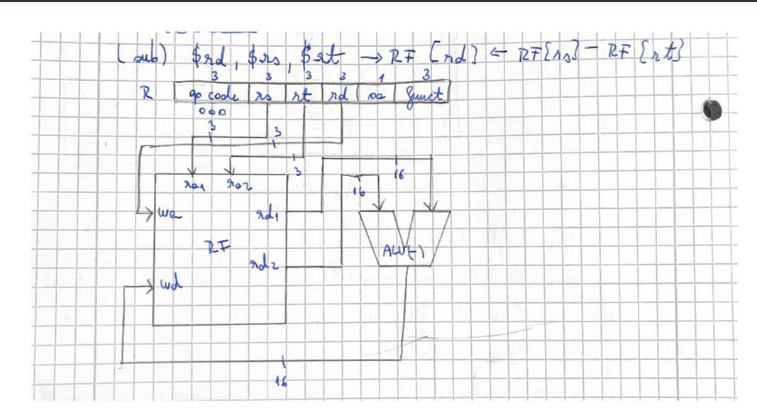 (sub) $rd, $rs, $rt → RF[rd] ← RF[rs] - RF[rt]
3 3 3 3 1 3
R op code rs rt rd sa funct
000
3 3
3 16
ra1 ra2 16
wa rd1
RF ALU(-)
rd2
wd
16